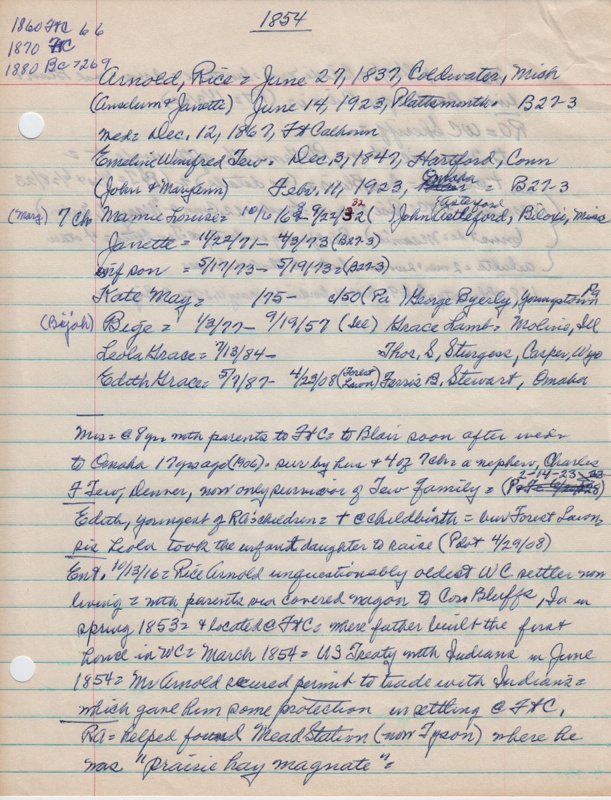 1854
1860 FtC 66
1870 FtC
1880 Bc 7269
Arnold, Rice = June 27, 1837, Coldwater, Mich
(Anselum & Janette) June 14, 1923, Plattsmouth = B27-3
wed = Dec, 12, 1867, Ft Calhoun
Emeline Winifred Tew = Dec, 3, 1847, Hartford, Conn
(John & Maryann) Feb. 11, 1923, Omaha = B27-3
(Mary) 7 Ch Mamie Louise = 10/16/68 - 9/22/32 ( ) John Castleford, Biloxi, Miss
Janette = 11/22/71 - 4/3/73 (B27-3)
inf son = 5/17/73 - 5/19/73 = (B27-3)
Kate May = /75 - c/50 (Pa ) George Byerly, Youngstown Pa
(Bijah) Bige = 1/3/77 - 9/19/57 (Ill) Grace Lamb = Moline, Ill
Leola Grace = 7/13/84 - Thos. S. Sturgess, Casper, Wyo
Edith Grace = 5/7/87 - 4/29/08 (Forest Lawn) Ferris B. Stewart, Omaha
Mrs = @ 8 yr. with parents to FtC = to Blair soon after wed =
to Omaha 17 yrs ago (1906). sur by hus & 4 of 7 ch = a nephew, Charles
F Tew, Denver, now only survivor of Tew family = 2-14-23
Edith, youngest of RA's children = + @ childbirth = bur Forest Lawn,
sis Leola took the infant daughter to raise (Pilot 4/29/08)
Ent, 10/13/16 = Rice Arnold unquestionably oldest WC settler now
living = with parents via covered wagon to Coun Bluffs, Ia in
spring 1853 = & located @ FtC = where father built the first
house in WC = March 1854 = US Treaty with Indians in June
1854 = Mr Arnold secured permit to trade with Indians =
which gave him some protection in settling @ FtC,
RA = helped found Mead Station (now Tyson) where he
was "prairie hay magnate" =